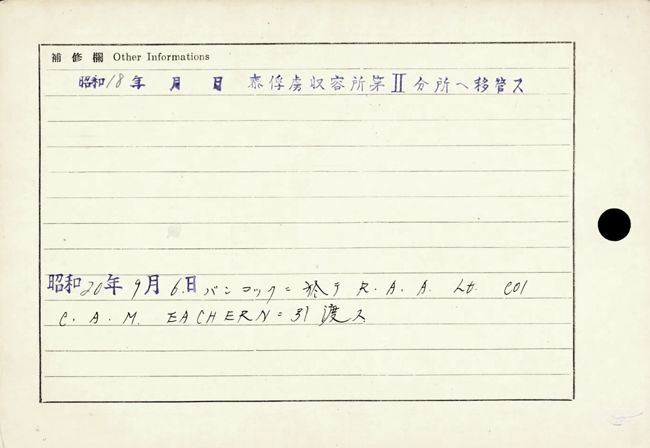 補修欄 Other Informations
昭和18年 月 日 泰俘虜収容所第Ⅱ分所ヘ移管ス
昭和20年9月6日バンコックニ於テ R.A.A. Lt. COl
C.A.M. EACHERNニ引渡ス